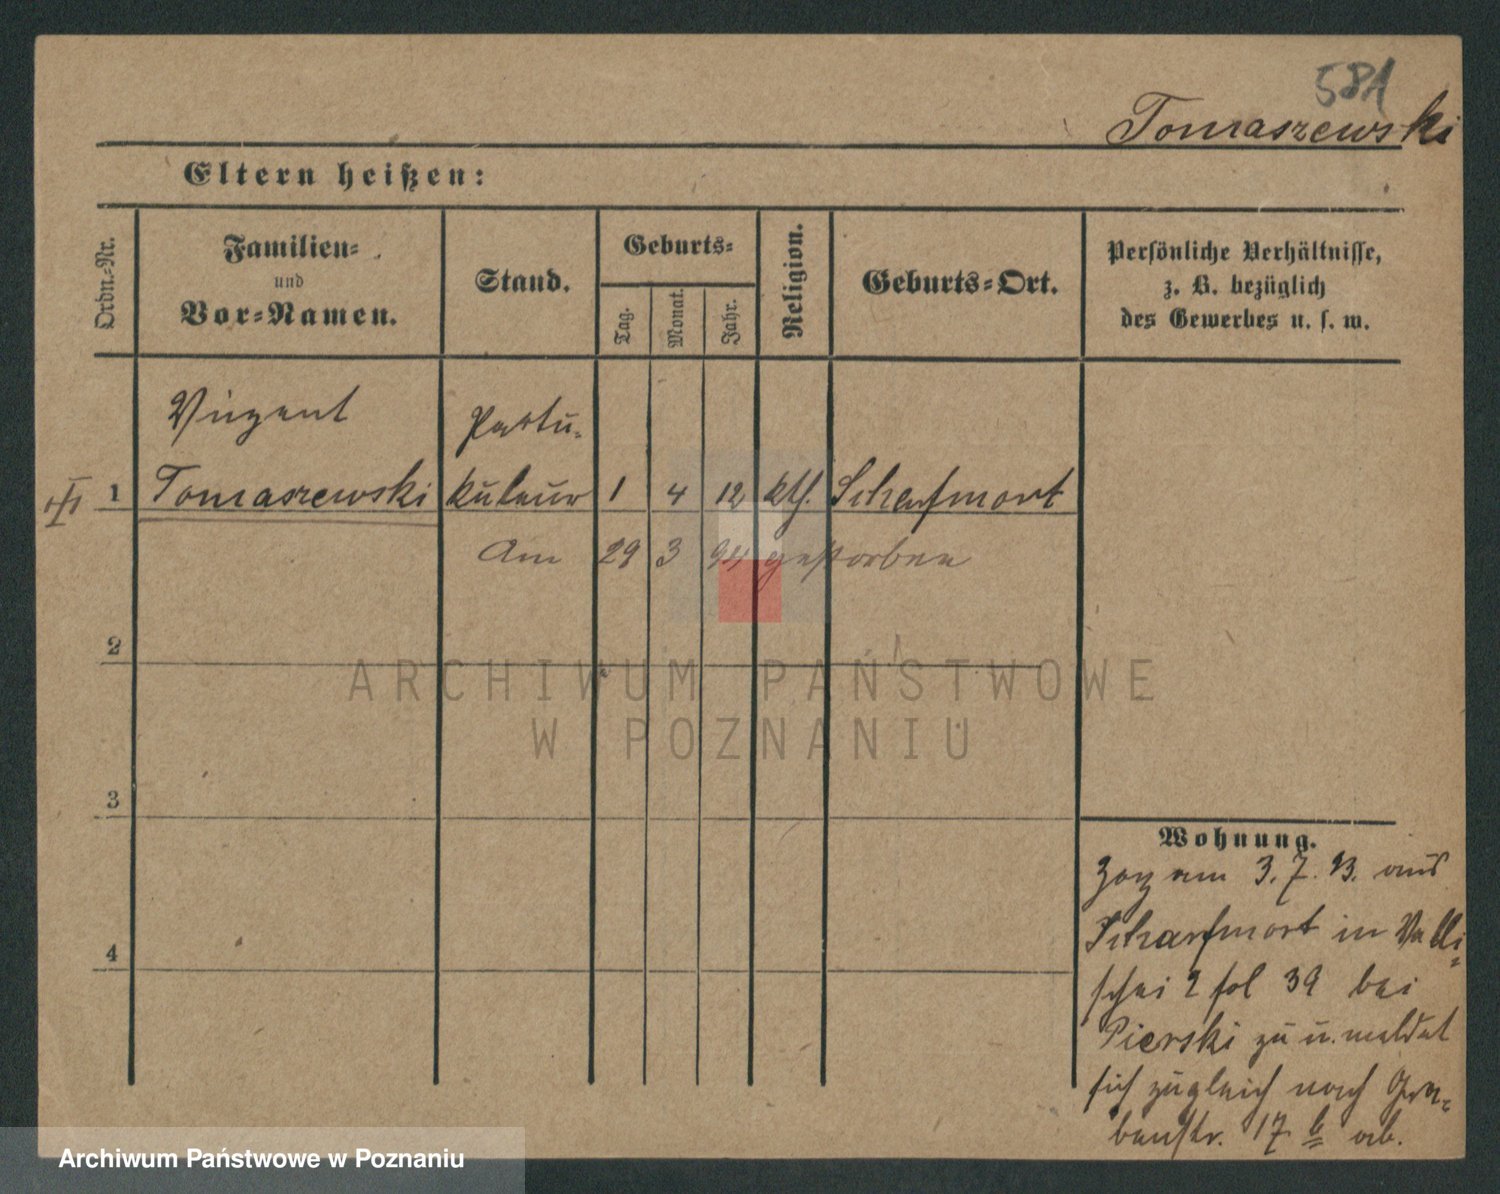 581
Tomaszewski
Eltern heißen:
Ordn.-Nr.
Familien-
und
Vor-Namen.
Stand.
Geburts-
Tag.
Monat.
Jahr.
Religion.
Geburts-Ort.
Persönliche Verhältnisse,
z. B. bezüglich
des Gewerbes u. s. w.
Vinzent
Partu-
1 Tomaszewski kuleur 1 4 12 kth. Scharfmort
Am 29 3 94 gestorben
2
3
4
Wohnung.
Zog am 3. 7. 93. aus
Scharfmort in Walli-
schei 2 fol 39 bei
Pierski zu u. meldet
sich zugleich nach Gra-
benstr. 17 b ab.
ARCHIWUM PAŃSTWOWE
W POZNANIU
Archiwum Państwowe w Poznaniu